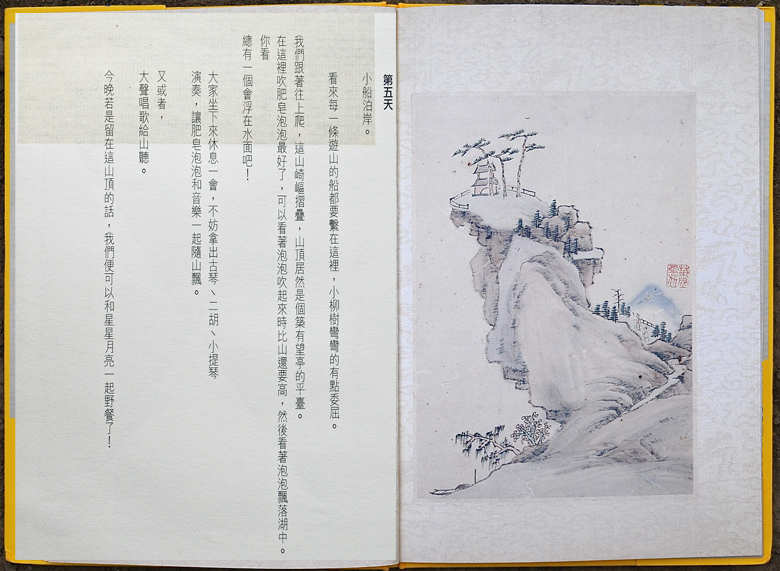 第五天
小船泊岸。
看來每一條遊山的船都要繫在這裡，小柳樹彎彎的有點委屈。
我們跟著往上爬，這山崎嶇摺疊，山頂居然是個築有望亭的平臺。
在這裡吹肥皂泡泡最好了，可以看著泡泡吹起來時比山還要高，然後看著泡泡飄落湖中。
你看
總有一個會浮在水面吧！
大家坐下來休息一會，不妨拿出古琴、二胡、小提琴
演奏，讓肥皂泡泡和音樂一起隨山飄。
又或者，
大聲唱歌給山聽。
今晚若是留在這山頂的話，我們便可以和星星月亮一起野餐了！